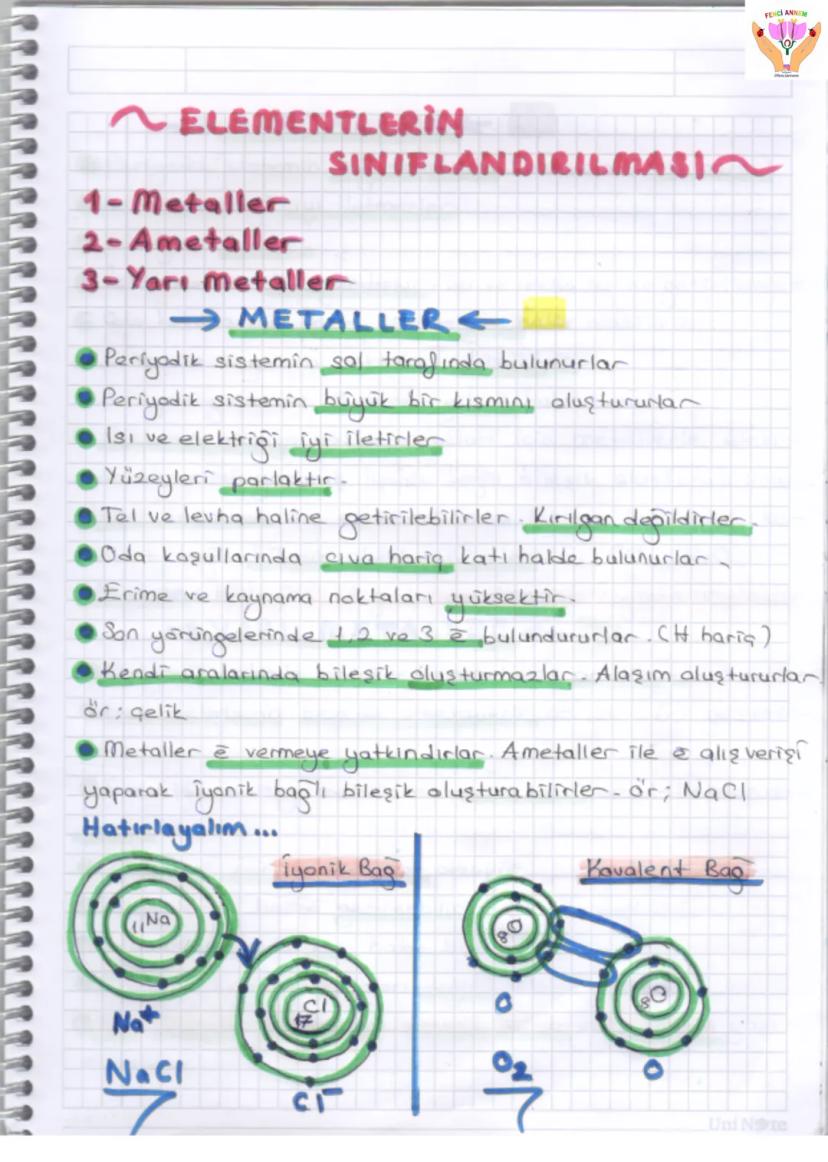 FENCİ ANNEM
~ ELEMENTLERİN
SINIFLANDIRILMASI ~
1- Metaller
2- Ametaller
3- Yarı Metaller
→ METALLER ←
● Periyodik sistemin sol tarafında bulunurlar
● Periyodik sistemin büyük bir kısmını oluştururlar
● Isı ve elektriği iyi iletirler
● Yüzeyleri parlaktır.
● Tel ve levha haline getirilebilirler. Kırılgan değildirler.
● Oda koşullarında cıva hariç katı halde bulunurlar.
● Erime ve kaynama noktaları yüksektir.
● Son yörüngelerinde 1,2 ve 3 ē bulundururlar. (H hariç)
● Kendi aralarında bileşik oluşturmazlar. Alaşım oluştururlar
ör; çelik
● Metaller ē vermeye yatkındırlar. Ametaller ile ē alış verişi
yaparak iyonik bağlı bileşik oluşturabilirler. ör; NaCl
Hatırlayalım...
İyonik Bağ
Kovalent Bağ
11Na
8O
Cl
17
8O
Na⁺
O
NaCl
O2
O
Cl⁻
Uni Note